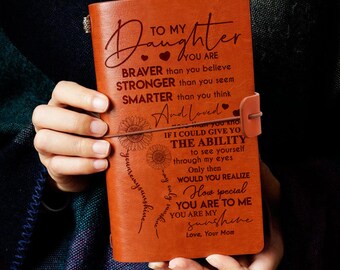 TO MY
Daughter
YOU ARE
BRAVER than you believe
STRONGER than you seem
SMARTER than you think
And loved
IF I COULD GIVE YO
THE ABILITY
to see yourself
through my eyes
Only then
WOULD YOU REALIZE
How special
YOU ARE TO ME
YOU ARE MY
sunshine
Love, Your Mom